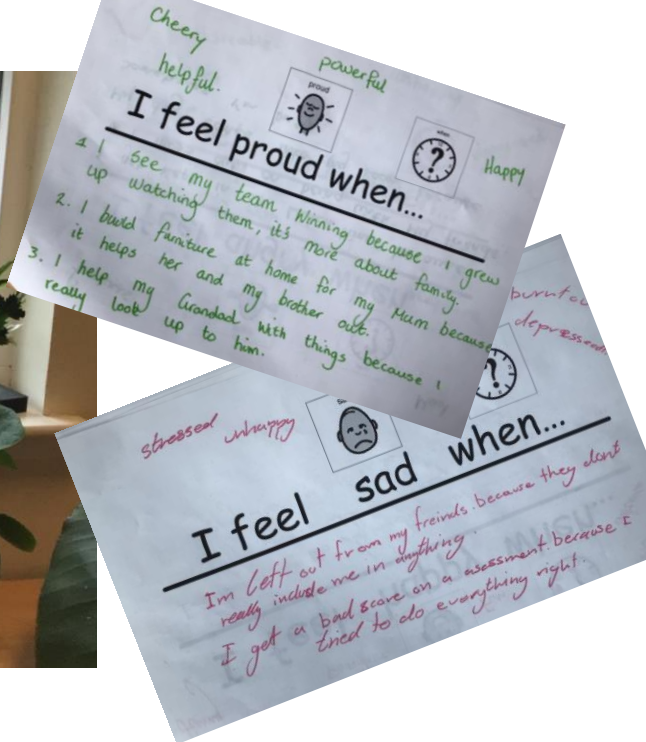 Cheery
helpful.
powerful
proud
when
I feel proud when...
Happy
1 I see my team winning because I grew
up watching them, it's more about family.
2. I build furniture at home for my Mum because
it helps her and my brother out.
3. I help my Grandad with things because I
really look up to him.
burnt o
depressed
stressed unhappy
I feel sad when...
Im left out from my freinds because they dont
really include me in anything.
I get a bad score on a assessment because I
tried to do everything right.